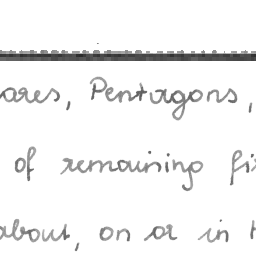 ares, Pentagons,
of remaining fi
about, on or in